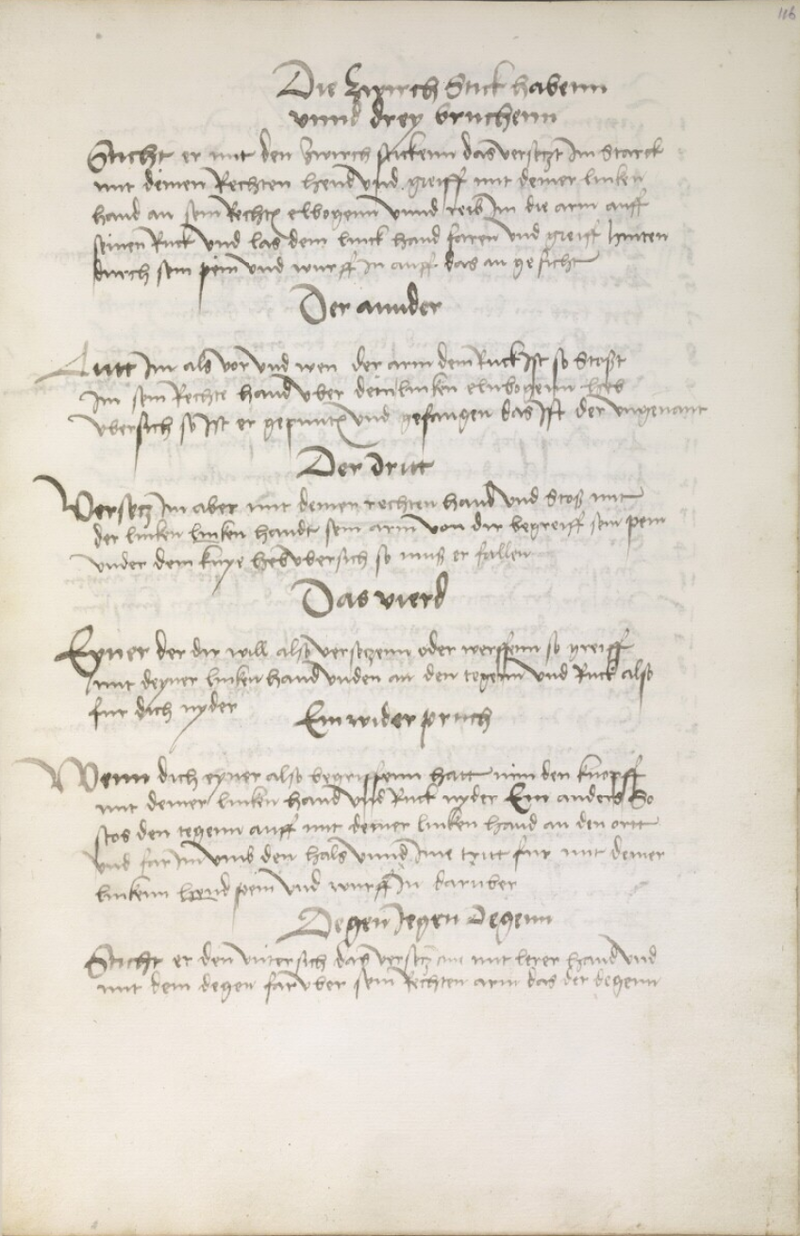 116
Die Zwirch Stick habenn
vnnd drey bruchenn
Sticht er mit den Zwirch stickenn das versetzt Im starck
mit deinen Rechten hend vnd greiff mit deiner lincken
hand an sein Recht elbogenn vnnd reib Im die arm auff
seinen Ruck vnd las dein linck hand faren vnd greiff hinten
durch sein pein vnd wurff In auff das an gesicht
Der annder
Lutt Im als vor vnd wen der arm dem Ruck Ist so Stost
Im sein Rechte hand vber dein lincken elnbogenn heb
vbersich so Ist er gepunt vnd gefangen das Ist der vngenant
Der dritt
Versetz Im aber mit deinen rechten hand vnd stos mit
der lincken lincken handt sein arm von dir begreiff sein pein
vnder dem knye heb vbersich so mus er fallen
Das vierd
Eyner der dir will also versetzenn oder werffenn so greiff
mit deyner lincken hand vnden an den tegenn vnd Ruck also
fur dich nyder
Ein wider pruch
Wenn dich eyner also begriffenn hatt nim den knopff
mit deiner lincken hand vnd Ruck nyder Ein anders So
stos den tegenn auff mit deiner lincken hand an den ortt
vnd far Im vmb den hals vnnd Ime tritt fur mit deiner
linckenn pein vnd wurff In daruber
Degen gegen Degenn
Sticht er den vntersich das versetz mit lerer hand vnd
mit dem degen far vber sein Rechten arm das der degenn